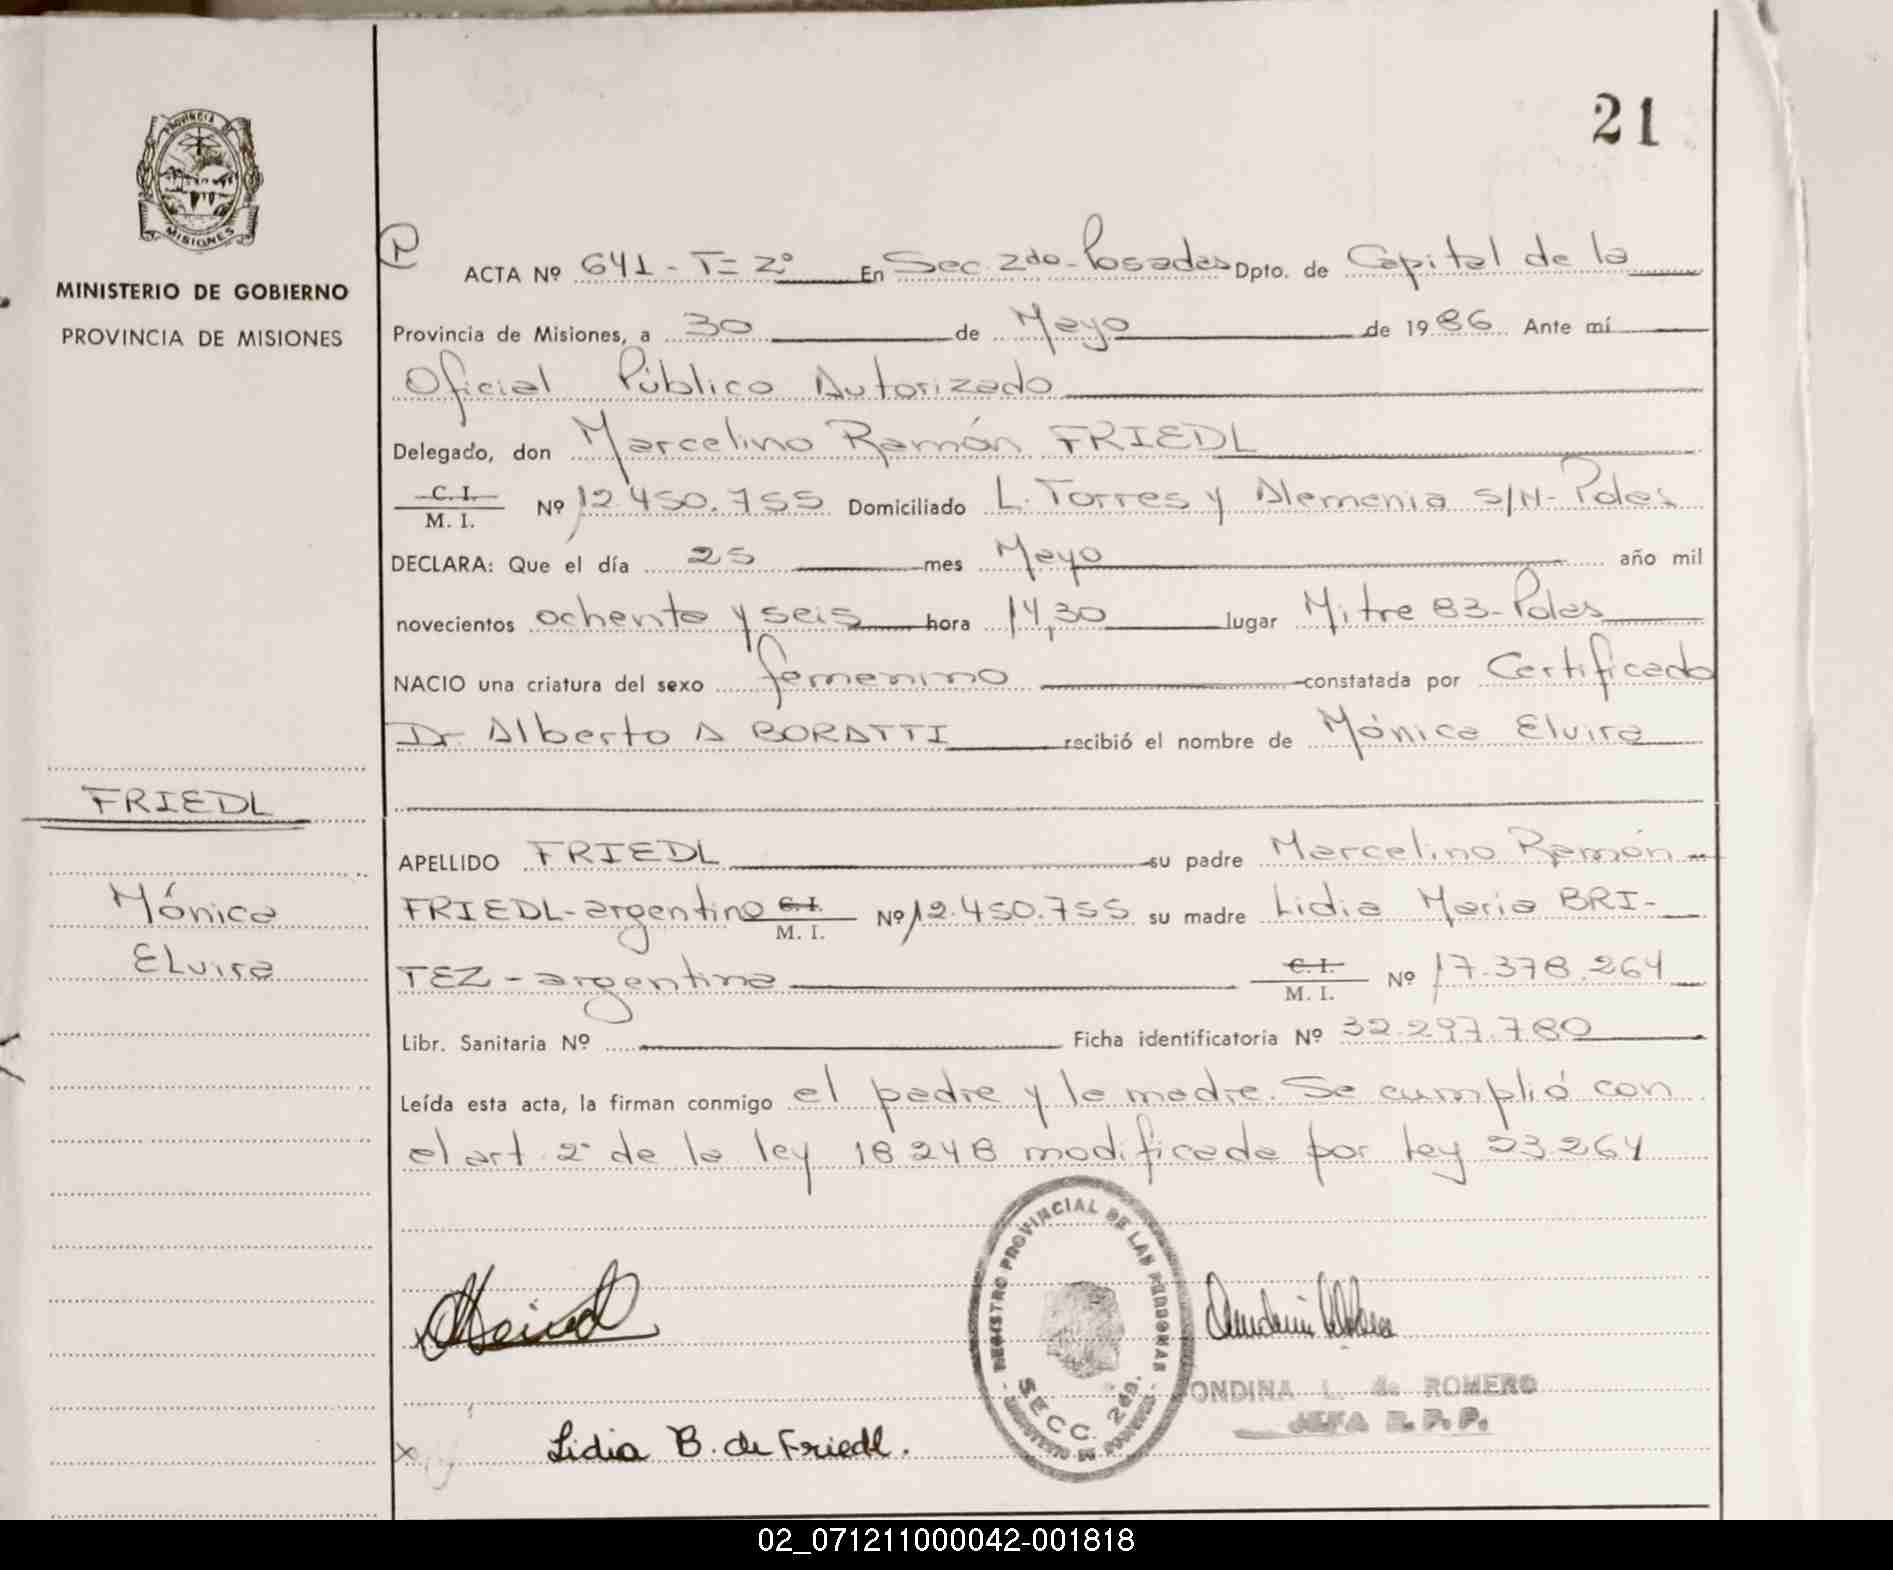 21
PROVINCIA DE
MISIONES
MINISTERIO DE GOBIERNO
PROVINCIA DE MISIONES
FRIEDL
Mónica
Elvira
P
ACTA Nº 641 - T= 2º En Sec. 2da - Posadas Dpto. de Capital de la
Provincia de Misiones, a 30 de Mayo de 1986 Ante mí
Oficial Público Autorizado
Delegado, don Marcelino Ramón FRIEDL
C. I.
M. I. Nº 12.450.755 Domiciliado L. Torres y Alemania S/N - Pdas
DECLARA: Que el día 25 mes Mayo año mil
novecientos ochenta y seis hora 14,30 lugar Mitre 83 - Pdas
NACIO una criatura del sexo femenino constatada por Certificado
Dr. Alberto A BORATTI recibió el nombre de Mónica Elvira
APELLIDO FRIEDL su padre Marcelino Ramón
FRIEDL - argentino C. I. M. I. Nº 12.450.755 su madre Lidia Maria BRI-
TEZ - argentina C. I. M. I. Nº 17.378.264
Libr. Sanitaria Nº Ficha identificatoria Nº 32.297.780
Leída esta acta, la firman conmigo el padre y la madre. Se cumplió con
el art 2º de la ley 18248 modificada por ley 23264
REGISTRO PROVINCIAL DE LAS PERSONAS
SECC. 2da.
ONDINA L. de ROMERO
JEFA R. P. P.
x Lidia B. de Friedl.
02_071211000042-001818